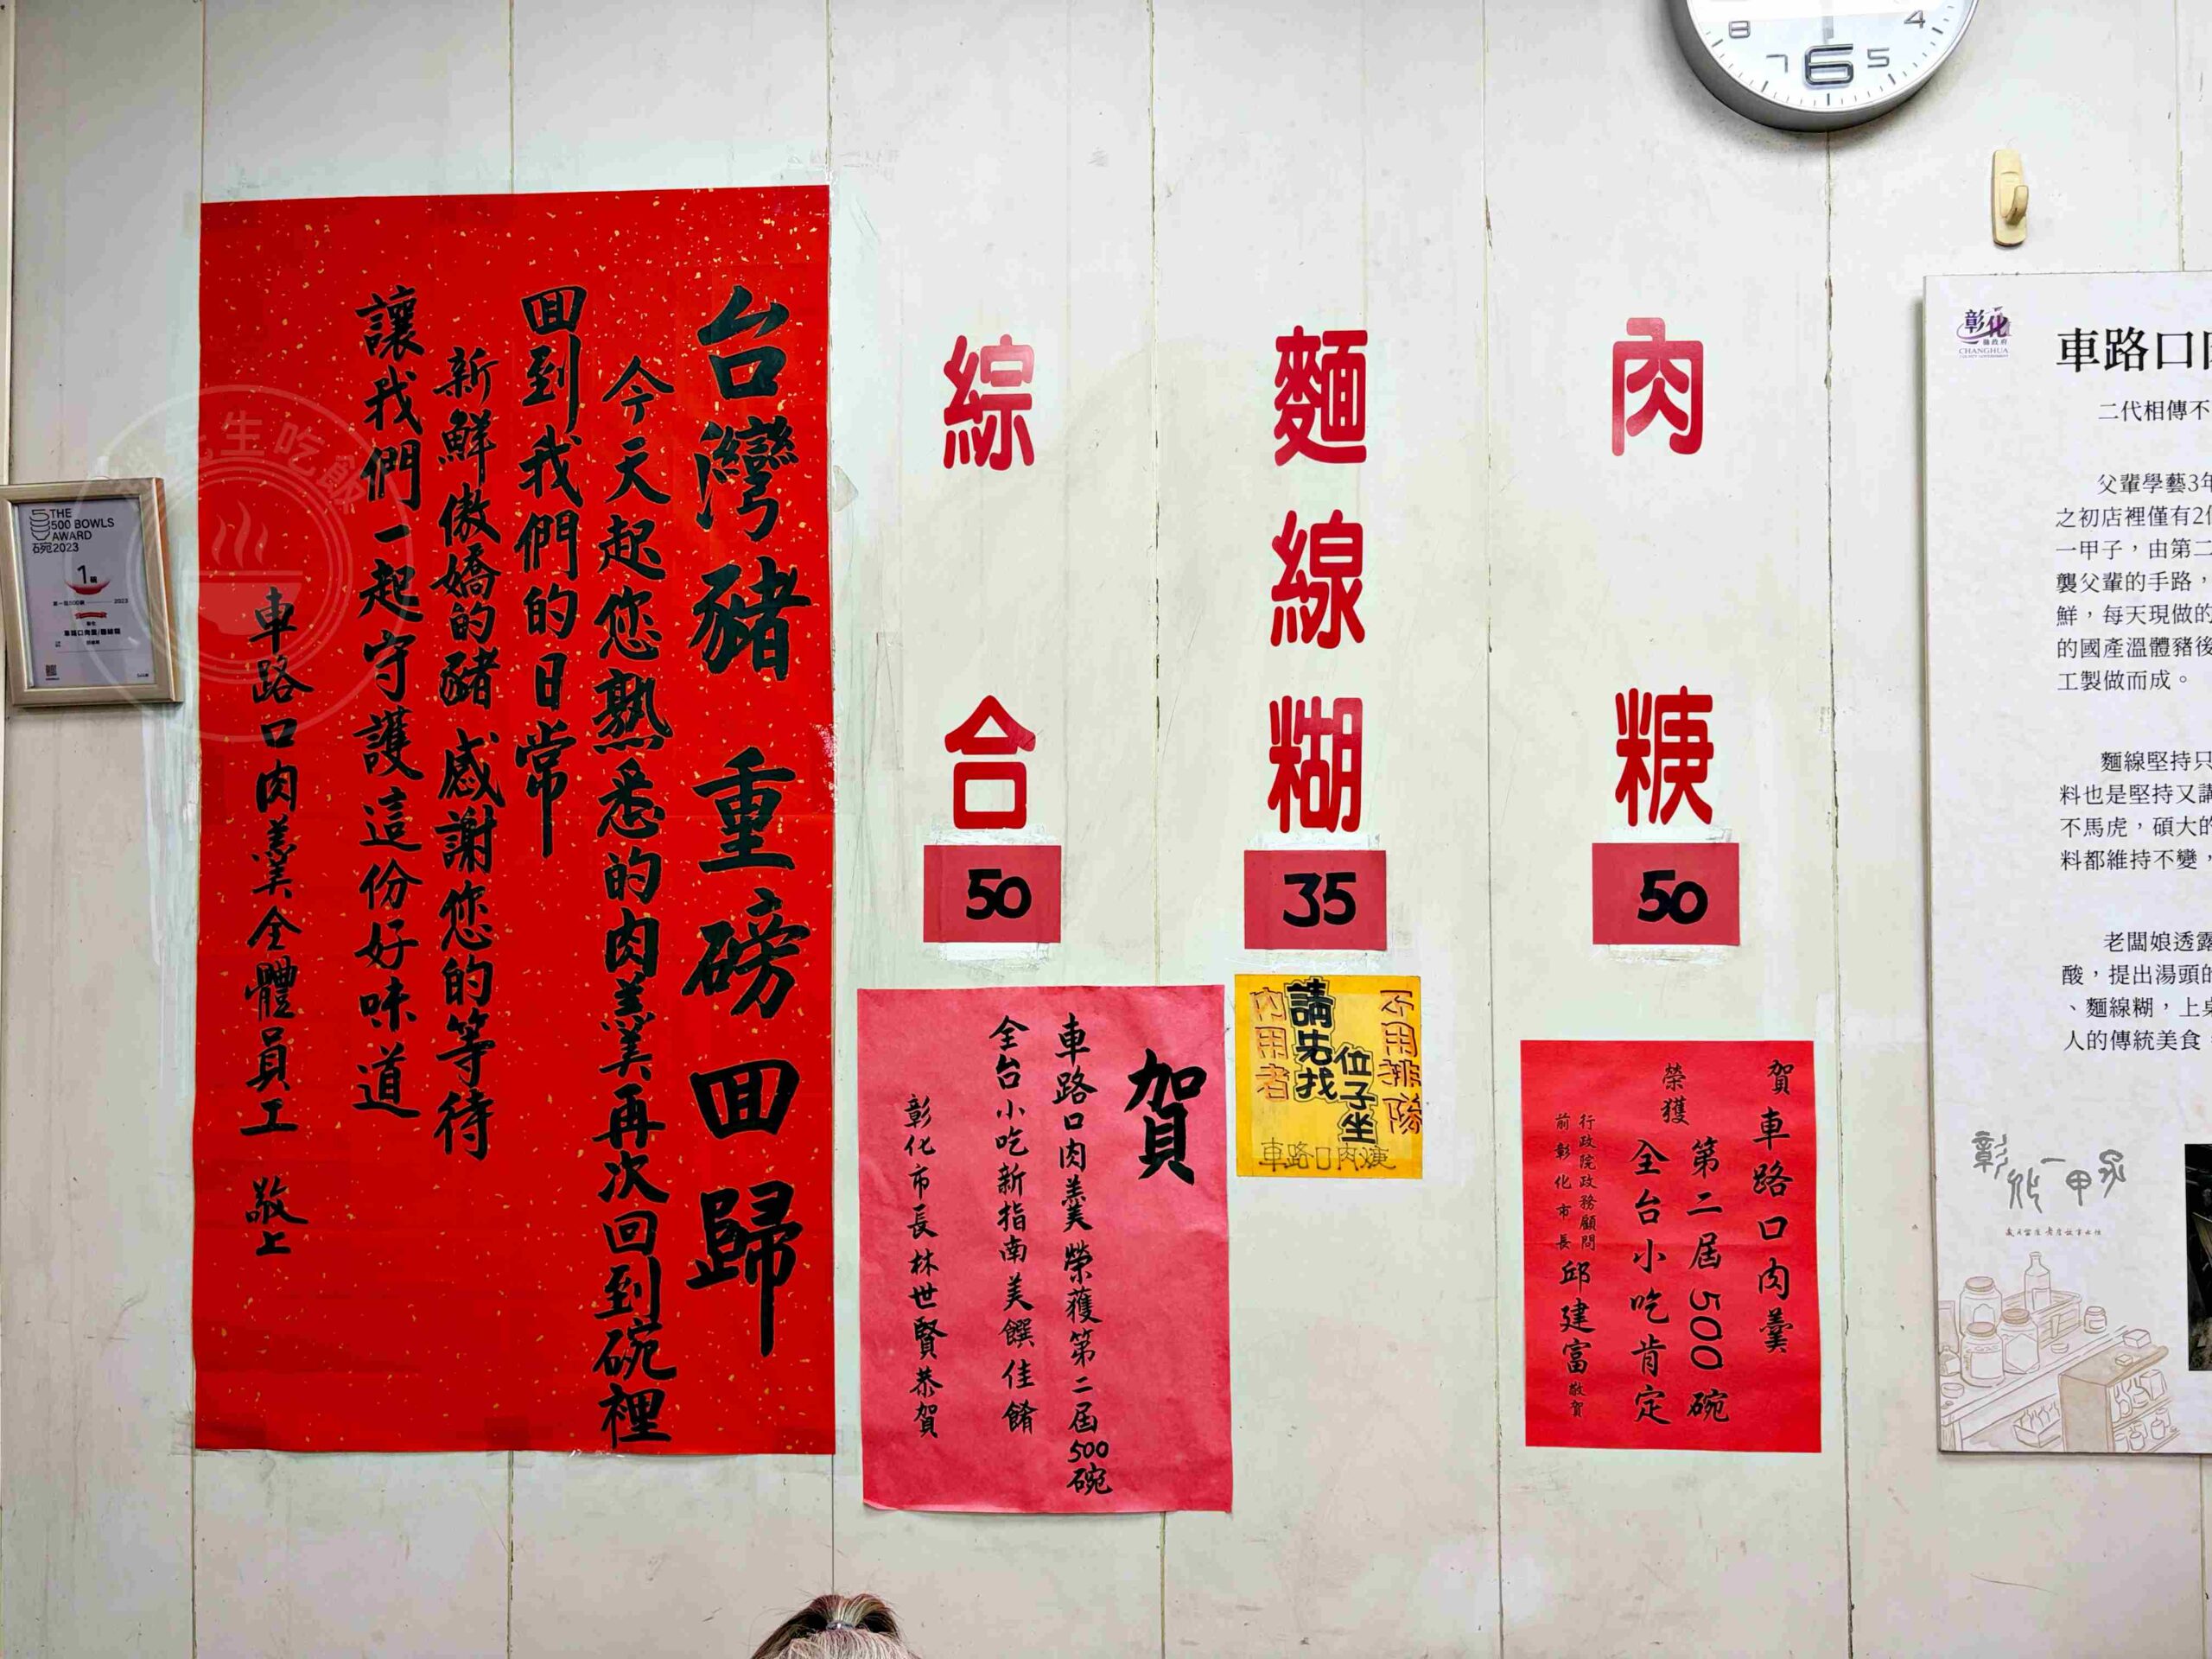 THE
500 BOWLS
AWARD
碗2023
1碗
2023
車路口肉羹/麵線糊
台灣豬 重磅回歸
今天起您熟悉的肉羹再次回到碗裡
回到我們的日常
新鮮傲嬌的豬 感謝您的等待
讓我們一起守護這份好味道
車路口肉羹全體員工 敬上
生吃飯
綜合
50
麵線糊
35
肉焿
50
賀
車路口肉羹榮獲第二屆500碗
全台小吃新指南美饌佳餚
彰化市長林世賢恭賀
不用排隊
位子坐
請先找
內用者
車路口肉焿
賀車路口肉羹
榮獲
第二屆500碗
全台小吃肯定
行政院政務顧問
前彰化市長
邱建富敬賀
8
7
6
5
4
彰化
縣政府
CHANGHUA
車路口
二代相傳不
父輩學藝3年
之初店裡僅有2
一甲子，由第二
襲父輩的手路，
鮮，每天現做的
的國產溫體豬後
工製做而成。
麵線堅持只
料也是堅持又講
不馬虎，碩大的
料都維持不變，
老闆娘透露
酸，提出湯頭的
、麵線糊，上桌
人的傳統美食
彰化一甲子